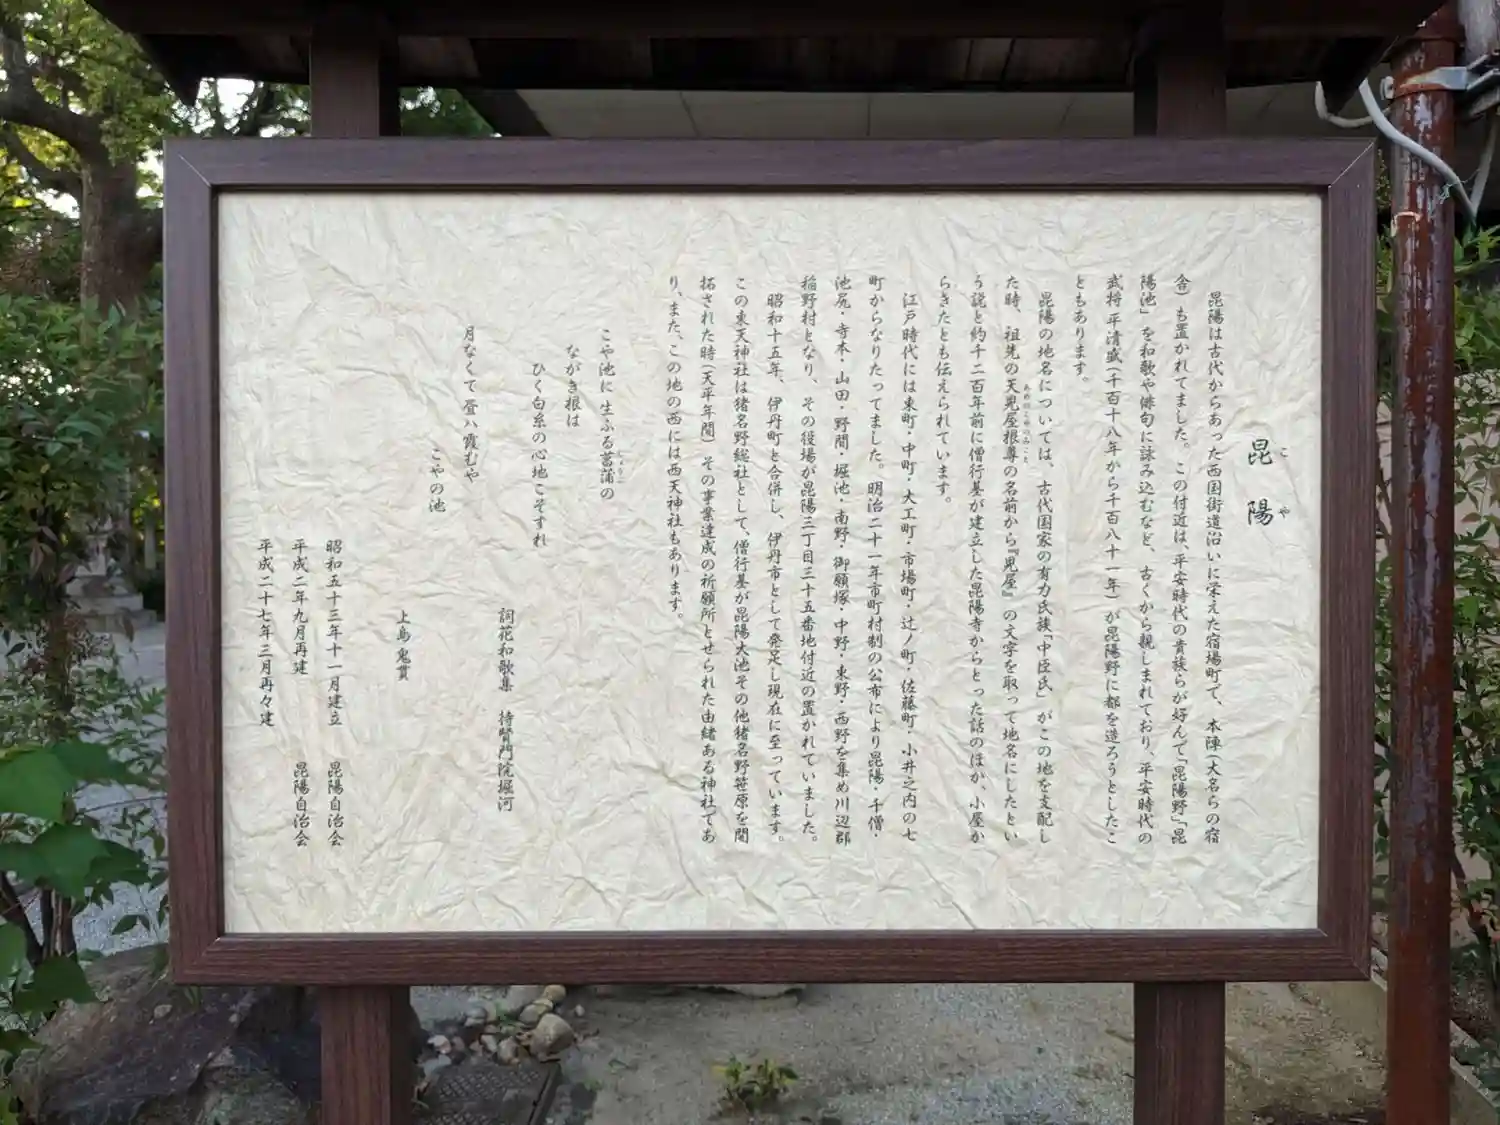 昆陽
こや
昆陽は古代からあった西国街道沿いに栄えた宿場町で、本陣(大名らの宿
舎)も置かれてました。この付近は、平安時代の貴族らが好んで「昆陽野」「昆
陽池」を和歌や俳句に詠み込むなど、古くから親しまれており、平安時代の
武将平清盛(千百十八年から千百八十一年)が昆陽野に都を造ろうとしたこ
ともあります。
昆陽の地名については、古代国家の有力氏族「中臣氏」がこの地を支配し
た時、祖先の天児屋根尊の名前から『児屋』の文字を取って地名にしたとい
あめのこやねのみこと
う説と約千二百年前に僧行基が建立した昆陽寺からとった話のほか、小屋か
らきたとも伝えられています。
江戸時代には東町・中町・大工町・市場町・辻ノ町・佐藤町・小井之内の七
町からなりたってました。明治二十一年市町村制の公布により昆陽・千僧・
池尻・寺本・山田・野間・堀池・南野・御願塚・中野・東野・西野を集め川辺郡
稲野村となり、その役場が昆陽三丁目三十五番地付近の置かれていました。
昭和十五年、伊丹町と合併し、伊丹市として発足し現在に至っています。
この東天神社は猪名野総社として、僧行基が昆陽大池その他猪名野笹原を開
拓された時(天平年間)その事業達成の祈願所とせられた由緒ある神社であ
り、また、この地の西には西天神社もあります。
こや池に生ふる菖蒲の
しょうぶ
ながき根は
ひく白糸の心地こそすれ
詞花和歌集 待賢門院堀河
月なくて昼ハ霞むや
こやの池
上島鬼貫
昭和五十三年十一月建立 昆陽自治会
平成二年九月再建 昆陽自治会
平成二十七年三月再々建